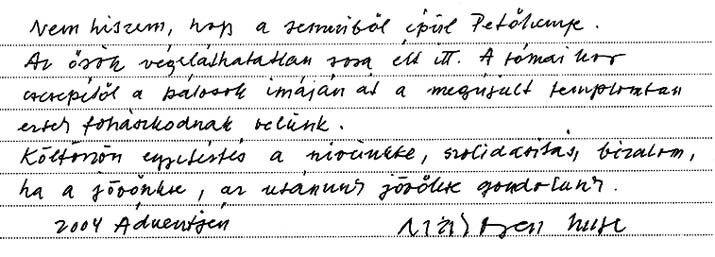 Nem hiszem, hogy a semmiből épül Petőhenye.
Az ősök végeláthatatlan sora élt itt. A római kor
cserepétől a pálosok imáján át a megújult templomban
értek fohászkodnak velünk.
Költözzön egyetértés a szívünkbe, szolidaritás, bizalom,
ha a jövőnkre, az utánunk jövőkre gondolunk.
2004 Adventjén